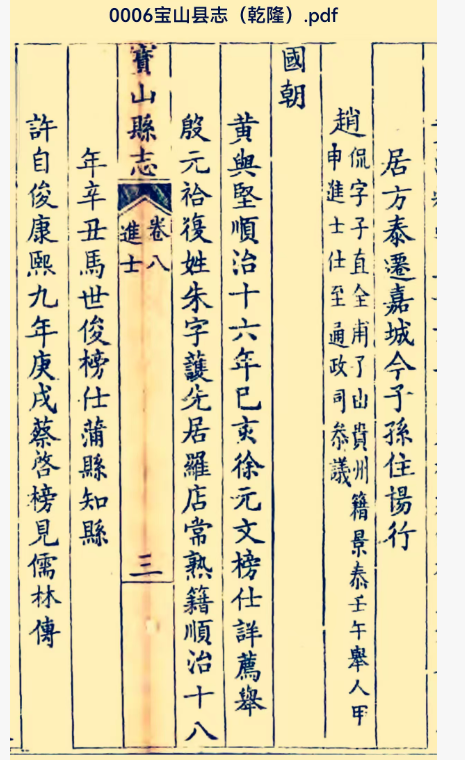 0006宝山县志（乾隆）.pdf
居方泰遷嘉城今子孫住楊行
趙
侃字子直全甫了山貴州籍景泰壬午舉人甲
申進士仕至通政司叅議
國朝
黄與堅順治十六年已亥徐元文榜仕詳薦舉
殷元祫復姓朱字䕶先居羅店常熟籍順治十八
寳山縣志
卷八
進士
三
年辛丑馬世俊榜仕蒲縣知縣
許自俊康熙九年庚戌蔡啓榜見儒林傳